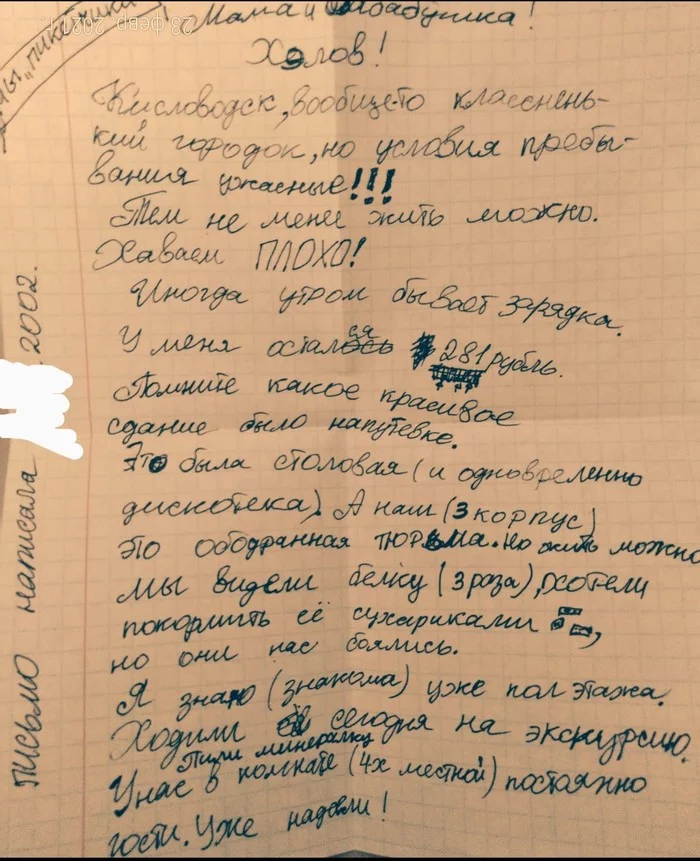 Мама и бабушка!
Хэлов!
Кисловодск, вообще-то классень-
кий городок, но условия пребы-
вания ужасные!!!
Тем не мене жить можно.
Хаваем ПЛОХО!
Иногда утром бывает зарядка.
У меня осталося 281 рубль.
Помните какое красивое
сдание было напутевке.
Это была столовая (и одновременно
дискотека). А наш (3 корпус)
это ободранная тюрьма. Но жить можно
Мы видели белку (3 раза), хотели
покормить её сухариками
но они нас боялись.
Я знаю (знакома) уже пол этажа.
Ходили сегодня на экскурсию.
Пили минералку
У нас в комнате (4х местной) постоянно
гости. Уже надоели!
ПИСЬМО написала 2002.
28 февр. 202 г.